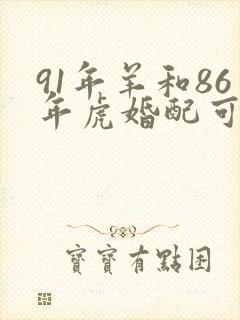 91年羊和86
年虎婚配可
寶寶有點困